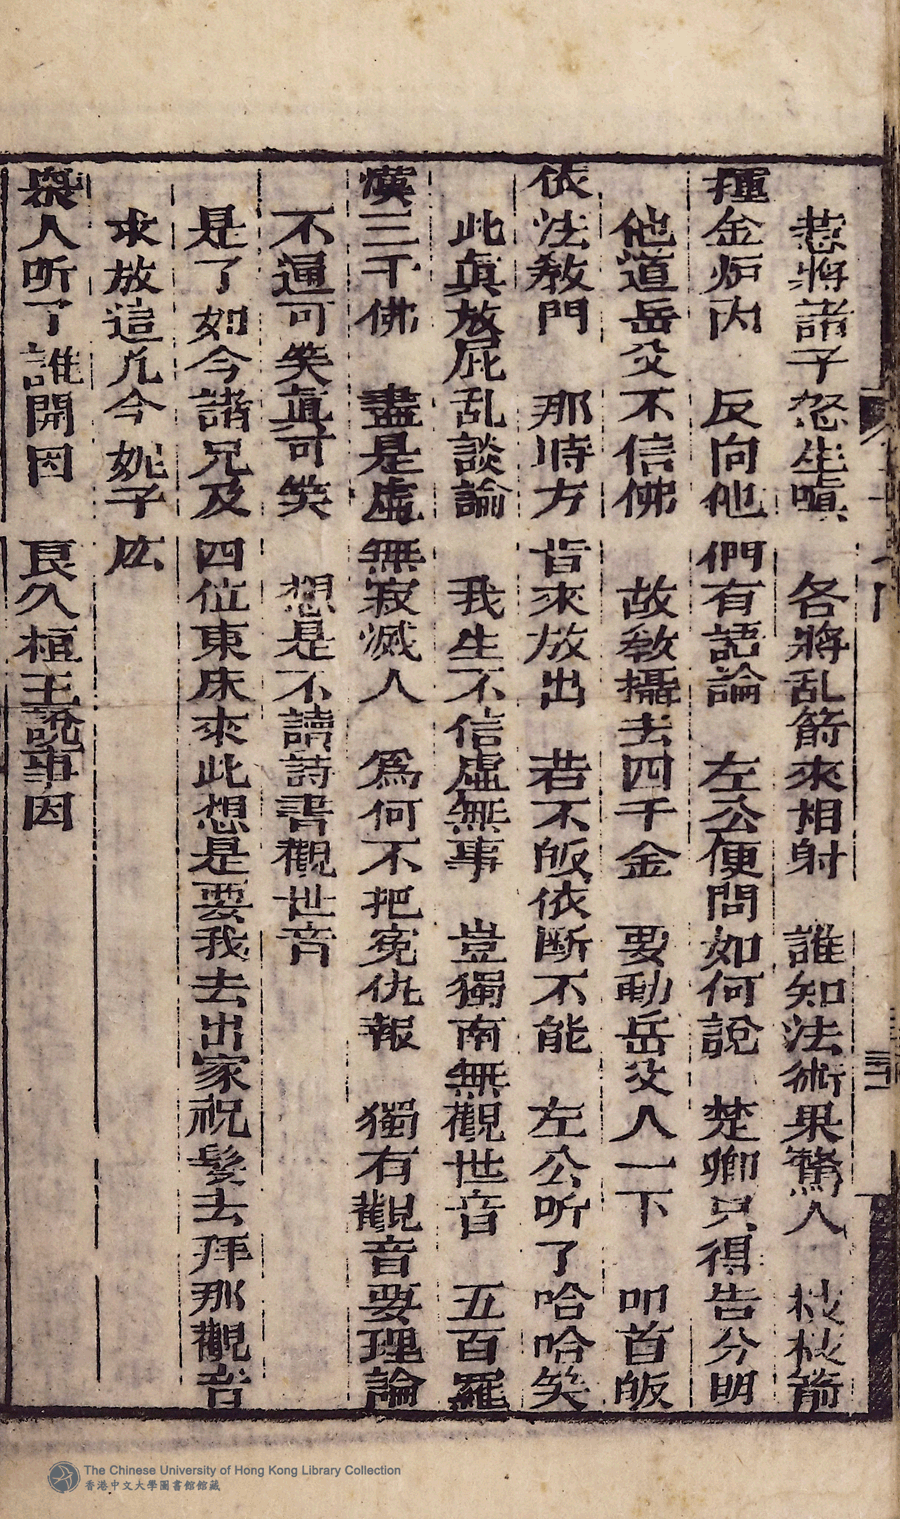 惹將諸子怒生嗔　各將乱箭來相射　誰知法術果驚人　枝枝箭
揷金炉内　反向他們有語論　左公便問如何說　楚卿只得告分明
他道岳父不信佛　故教攝去四千金　要動岳父人一下　叩首皈
依法教門　那時方肯來放出　若不皈依断不能　左公听了哈哈笑
此真放屁乱談論　我生不信虛無事　豈獨南無觀世音　五百羅
漢三千佛　盡是虛無寂滅人　爲何不把寃仇報　獨有觀音要理論
不通可笑真可笑　想是不讀詩書觀世音
是了如今諸兄及四位東床來此想是要我去出家祝髮去拜那觀音
求放這几个妮子庅
衆人听了誰開因　良久桓王說事因
The Chinese University of Hong Kong Library Collection
香港中文大學圖書館館藏